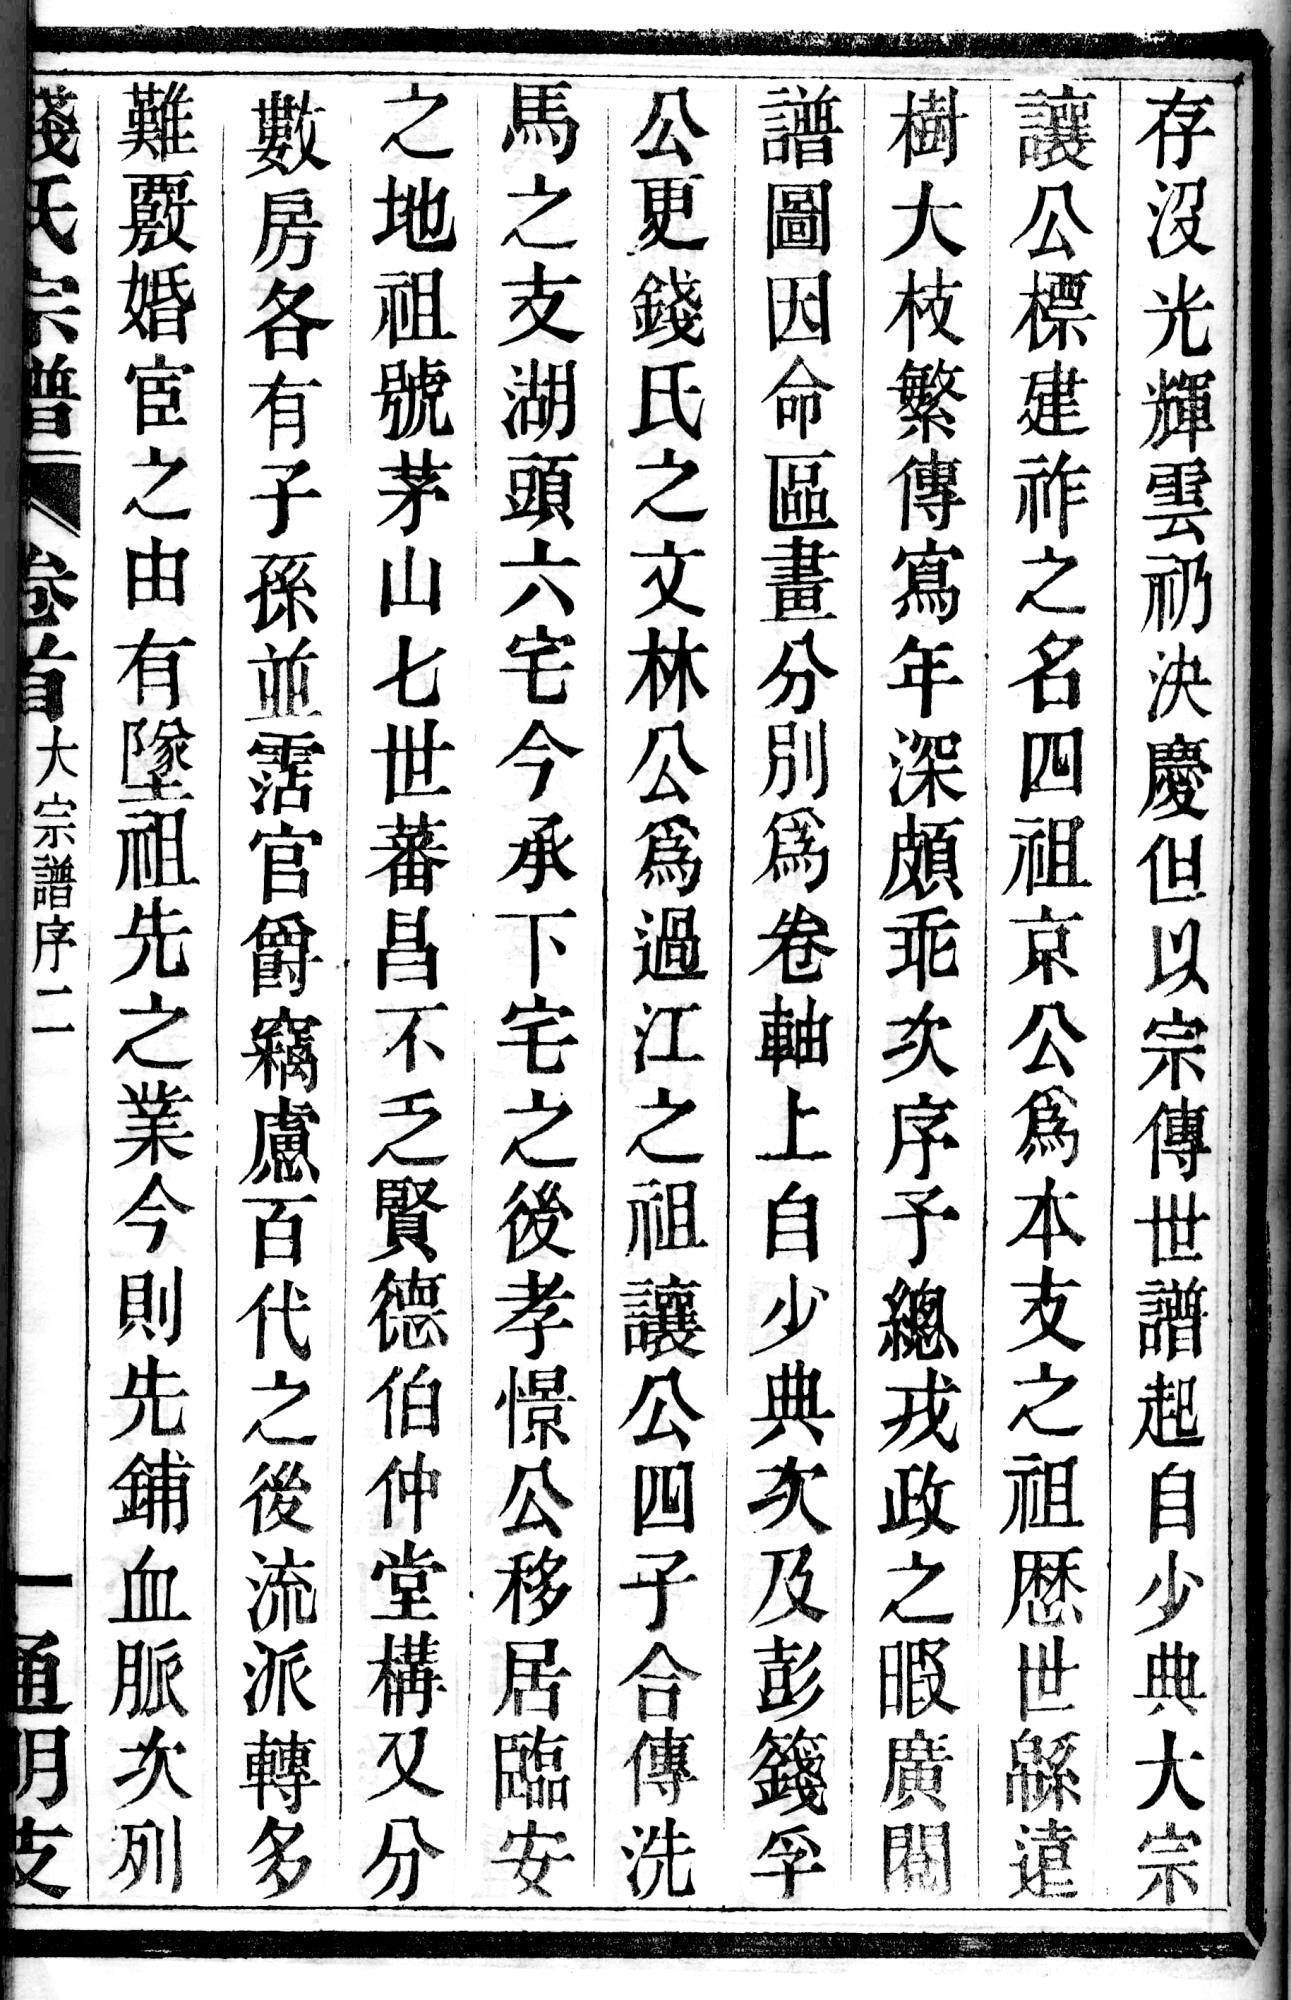 存沒光輝雲礽決慶但以宗傳世譜起自少典大宗
讓公標建祚之名四祖京公爲本支之祖歷世緜遠
樹大枝繁傳寫年深頗乖次序予總戎政之暇廣閱
譜圖因命區畫分別爲卷軸上自少典次及彭籛孚
公更錢氏之文林公爲過江之祖讓公四子合傳洗
馬之支湖頭六宅今承下宅之後孝憬公移居臨安
之地祖號茅山七世蕃昌不乏賢德伯仲堂構又分
數房各有子孫並霑官爵竊慮百代之後流派轉多
難覈婚宦之由有墜祖先之業今則先鋪血脈次列
錢氏宗譜 卷首 大宗譜序二 一 通明支